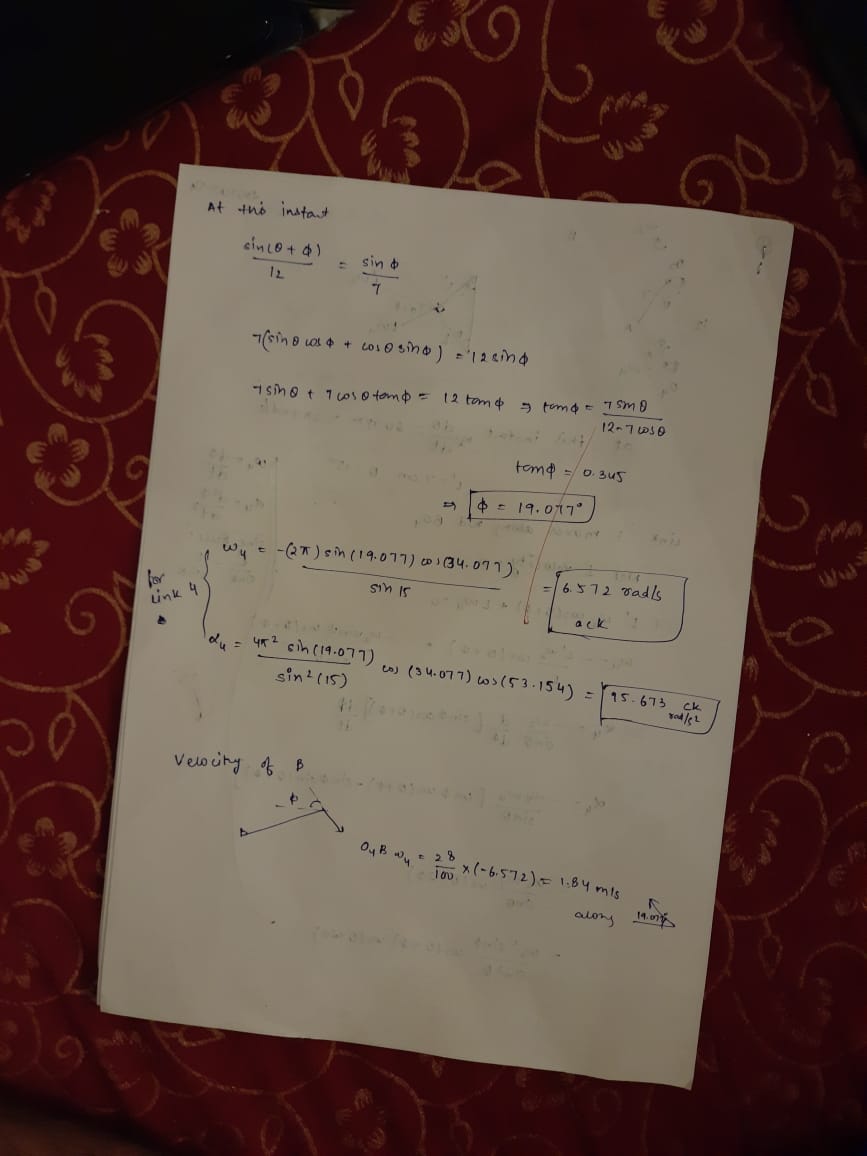 At this instant
sin(θ + φ) / 12 = sin φ / 7
7(sin θ cos φ + cos θ sin φ) = 12 sin φ
7 sin θ + 7 cos θ tan φ = 12 tan φ ⇒ tan φ = 7 sin θ / 12 - 7 cos θ
tan φ = 0.345
⇒ φ = 19.077°
for Link 4
ω4 = -(2π) sin(19.077) cos(34.077) / sin 15 = 6.572 rad/s ack
α4 = 4π² sin(19.077) / sin²(15) cos(34.077) cos(53.154) = 95.673 ck rad/s²
Velocity of B
O4B ω4 = 28/100 × (-6.572) = 1.84 m/s
along 19.077